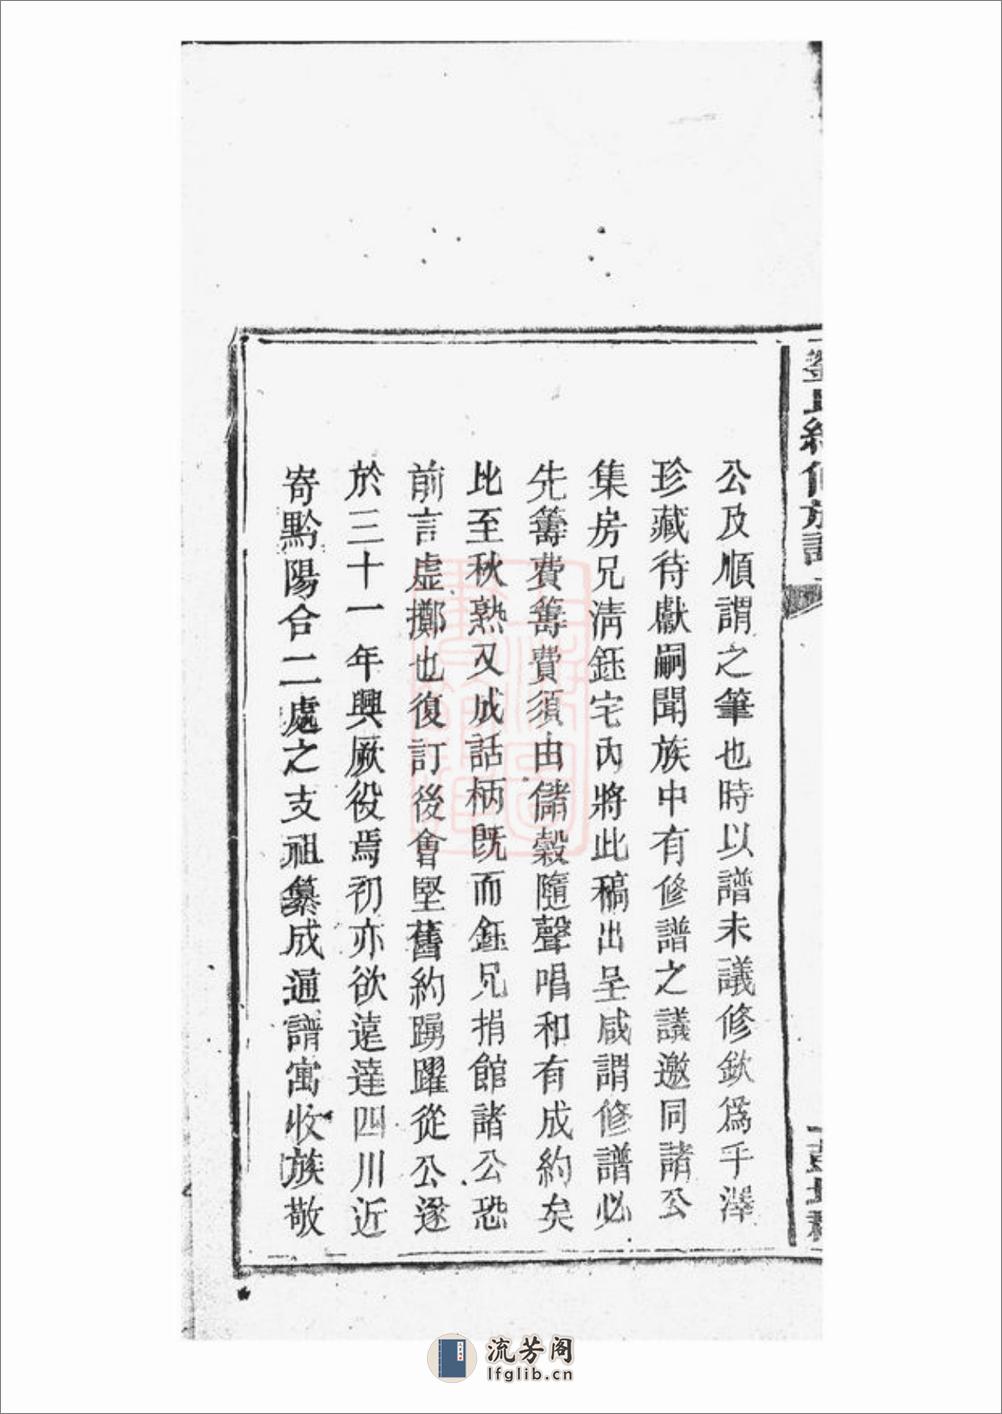 公及順謂之筆也時以譜未議修欽爲手澤
珍藏待獻嗣聞族中有修譜之議邀同諸公
集房兄淸鈺宅內將此稿出呈咸謂修譜必
先籌費籌費須由儲穀隨聲唱和有成約矣
比至秋熟又成話柄既而鈺兄捐館諸公恐
前言虛擲也復訂後會堅舊約踴躍從公遂
於三十一年興厥役焉初亦欲遠達四川近
寄黔陽合二處之支祖纂成通譜寓收族敬
流芳阁
lfglib.cn